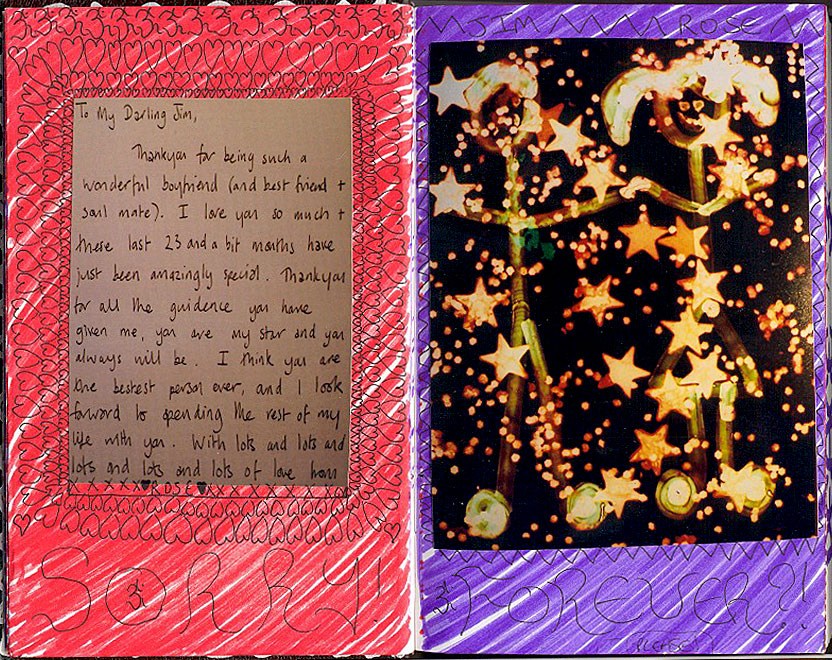 To My Darling Jim,
Thankyou for being such a
wonderful boyfriend (and best friend +
soul mate). I love you so much +
these last 23 and a bit months have
just been amazingly special. Thankyou
for all the guidence you have
given me, you are my star and you
always will be. I think you are
the bestest person ever, and I look
forward to spending the rest of my
life with you. With lots and lots and
lots and lots and lots of love from
X X X X X ♥ ROSE ♥ X X X X X X X X
SORRY!
JIM ROSE
FOREVER?!
(PLEASE)